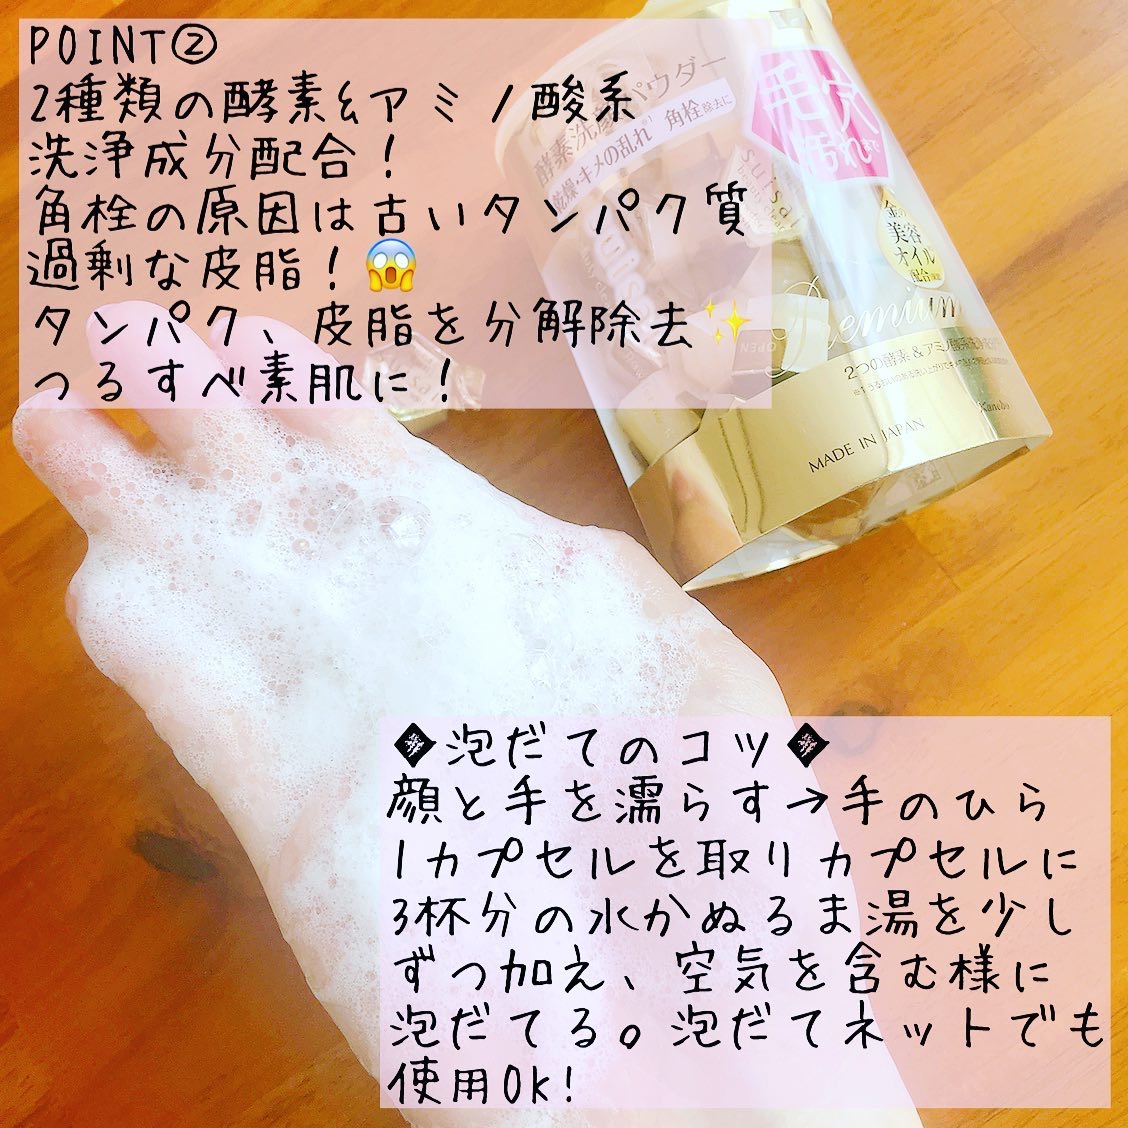 POINT②
2種類の酵素&アミノ酸系
洗浄成分配合！
角栓の原因は古いタンパク質
過剰な皮脂！😱
タンパク、皮脂を分解除去✨
つるすべ素肌に！
酵素洗顔パウダー
乾燥・キメの乱れ 角栓除去に
毛穴
汚れまで
suisai
美容
オイル
配合
Premium
OPEN
2つの酵素&アミノ酸系洗浄
Kanebo
MADE IN JAPAN
◆泡だてのコツ◆
顔と手を濡らす→手のひら
1カプセルを取りカプセルに
3杯分の水かぬるま湯を少し
ずつ加え、空気を含む様に
泡だてる。泡だてネットでも
使用OK!